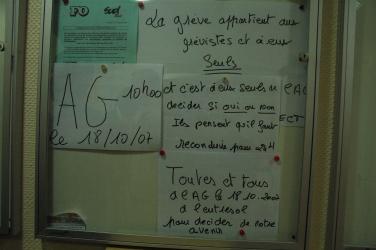 FO
Sud
La grève appartient aux
grévistes et à eux
Seuls
AG 10h00
le 18/10/07
et c'est à eux seuls
decider si oui ou non
Ils pensent qu'il faut
reconduire
l'AG
ECT
Toutes et tous
à l'AG le 18.10.2007
à l'entresol
pour décider de notre
avenir